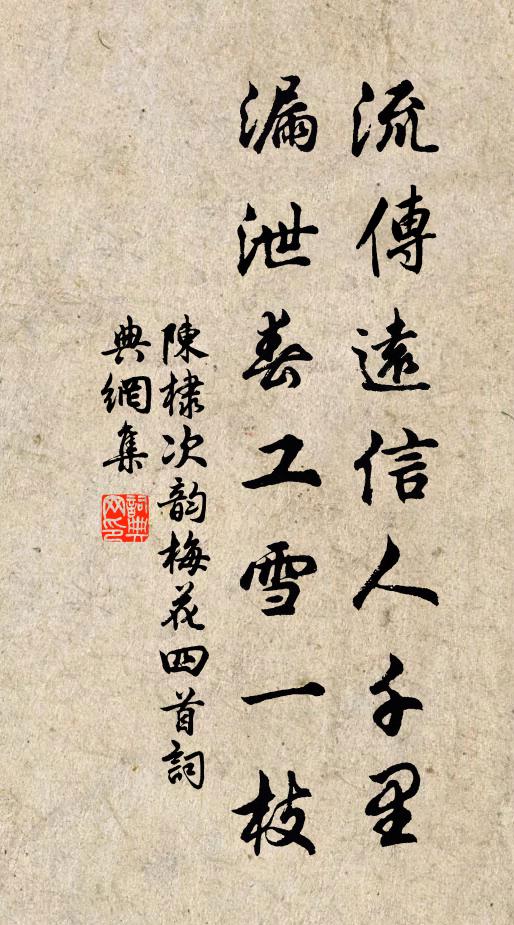 流傳遠信人千里
漏泄春工雪一枝
陳棣次韵梅花四首詞
典網集
詞典
网印